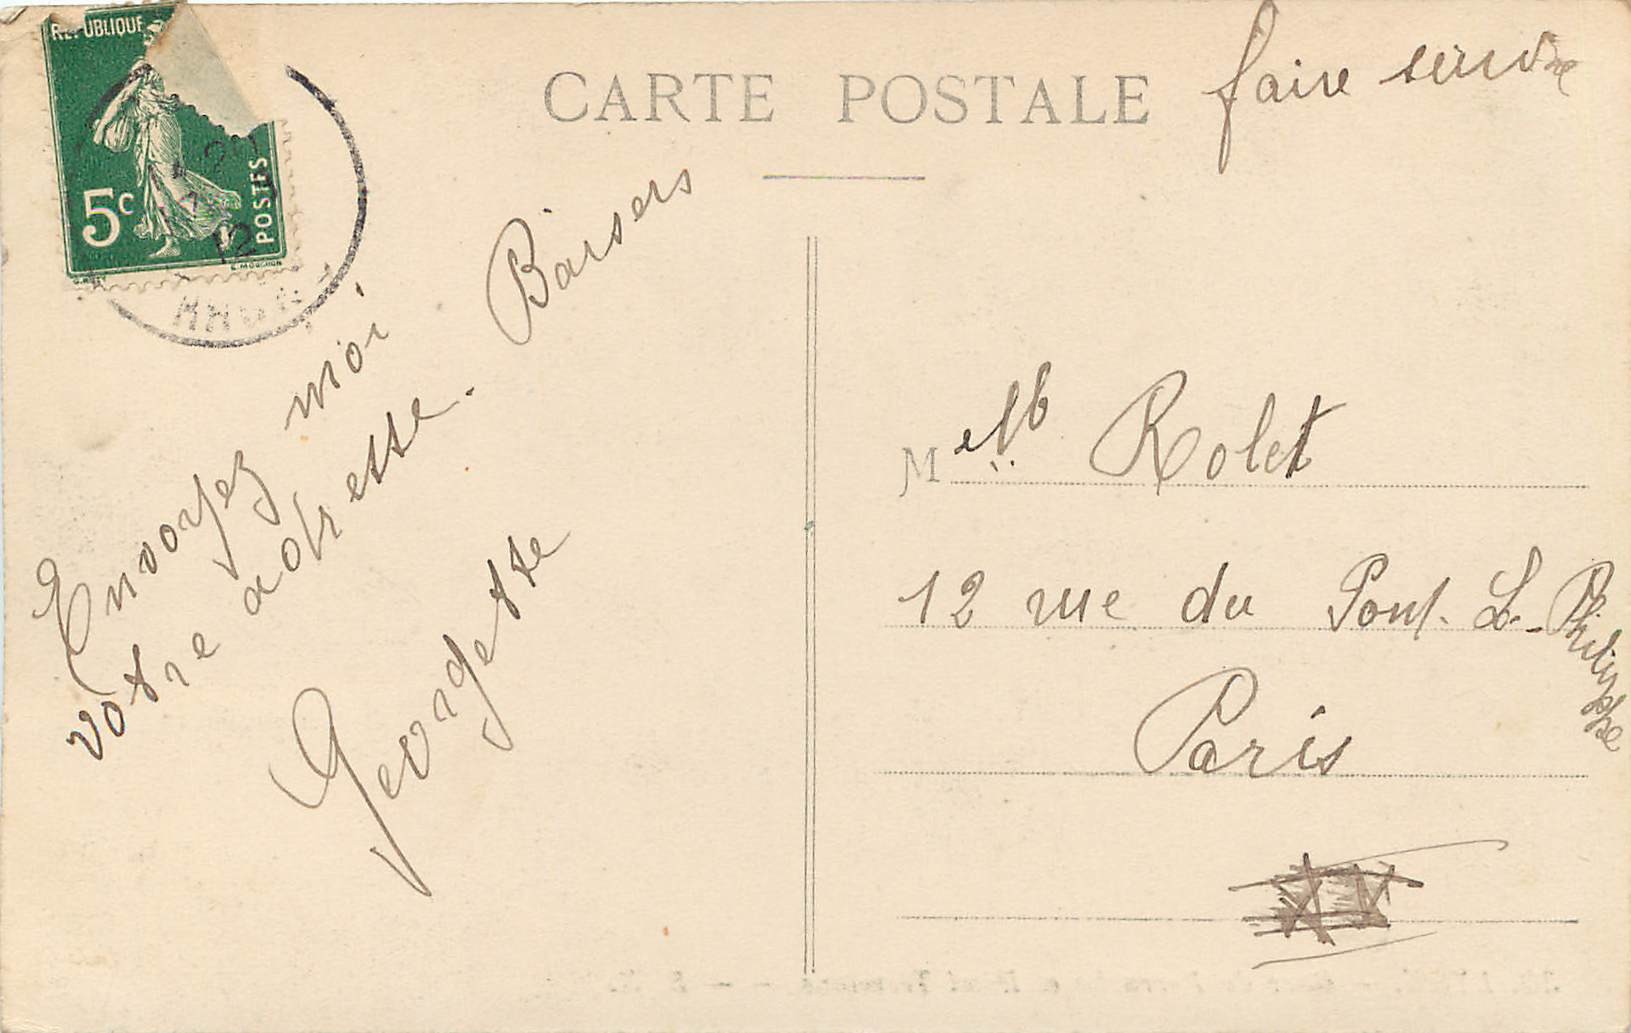 REPUBLIQUE
5c
POSTES
12
CARTE POSTALE
faire suivre
Envoyez moi
votre adresse. Baisers
Georgette
Melle Rolet
12 rue du Pont. L. Philippe
Paris
XV